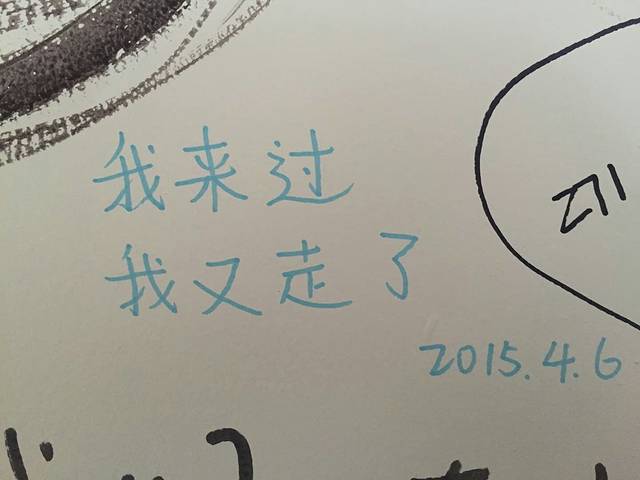 我来过
我又走了
2015.4.6